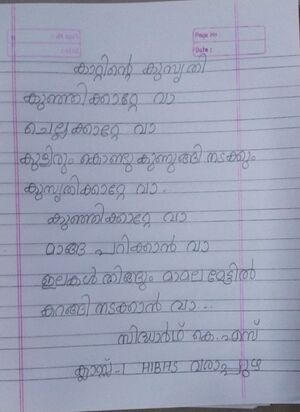 Page No:
Date:
കാറ്റിന്റെ കുസൃതി
കുഞ്ഞിക്കാറ്റേ വാ
ചെല്ലക്കാറ്റേ വാ
കുളിരും കൊണ്ടു കുണുങ്ങി നടക്കും
കുസൃതിക്കാറ്റേ വാ.
കുഞ്ഞിക്കാറ്റേ വാ
മാങ്ങ പറിക്കാൻ വാ
ഇലകൾ തിങ്ങും മാമല മേട്ടിൽ
കറങ്ങി നടക്കാൻ വാ...
സിദ്ധാർഥ് കെ.എസ്
ക്ലാസ്സ്-1 HIBHS വരാപ്പുഴ